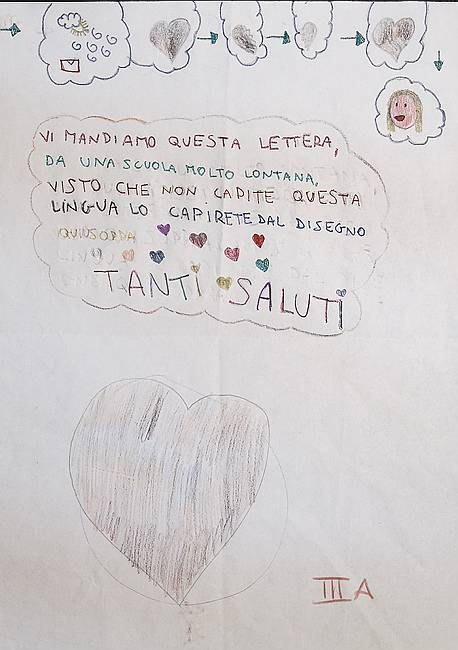 VI MANDIAMO QUESTA LETTERA,
DA UNA SCUOLA MOLTO LONTANA,
VISTO CHE NON CAPITE QUESTA
LINGUA LO CAPIRETE DAL DISEGNO
TANTI SALUTI
III A